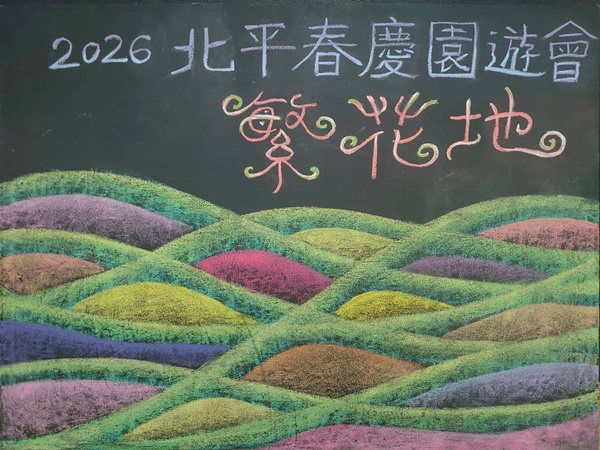 2026 北平春慶園遊會
繁花地